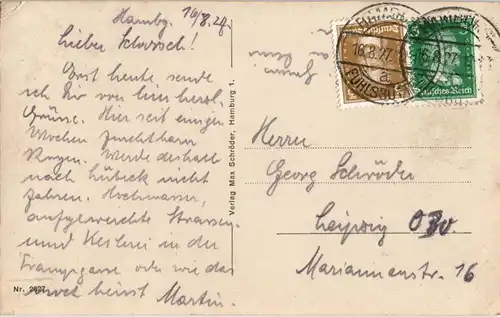 Hambg. 16/8.27.
Lieber Schorsch!
Erst heute sende
ich Dir von hier herzl.
Grüsse. Hier seit einigen
Wochen furchtbarer
Regen. Werde deshalb
nach Lübeck nicht
fahren. Hochwasser,
aufgeweichte Strassen
und Keilerei in der
oder wie das
heisst Martin.
Nr. 2627
Verlag Max Schröder, Hamburg 1.
HAMBURG
16.8.27.
a
FUHLSBÜTTEL
Deutsches Reich
5
16.8.27.
Herrn
Georg Schröder
Leipzig O30
Mariannenstr. 16